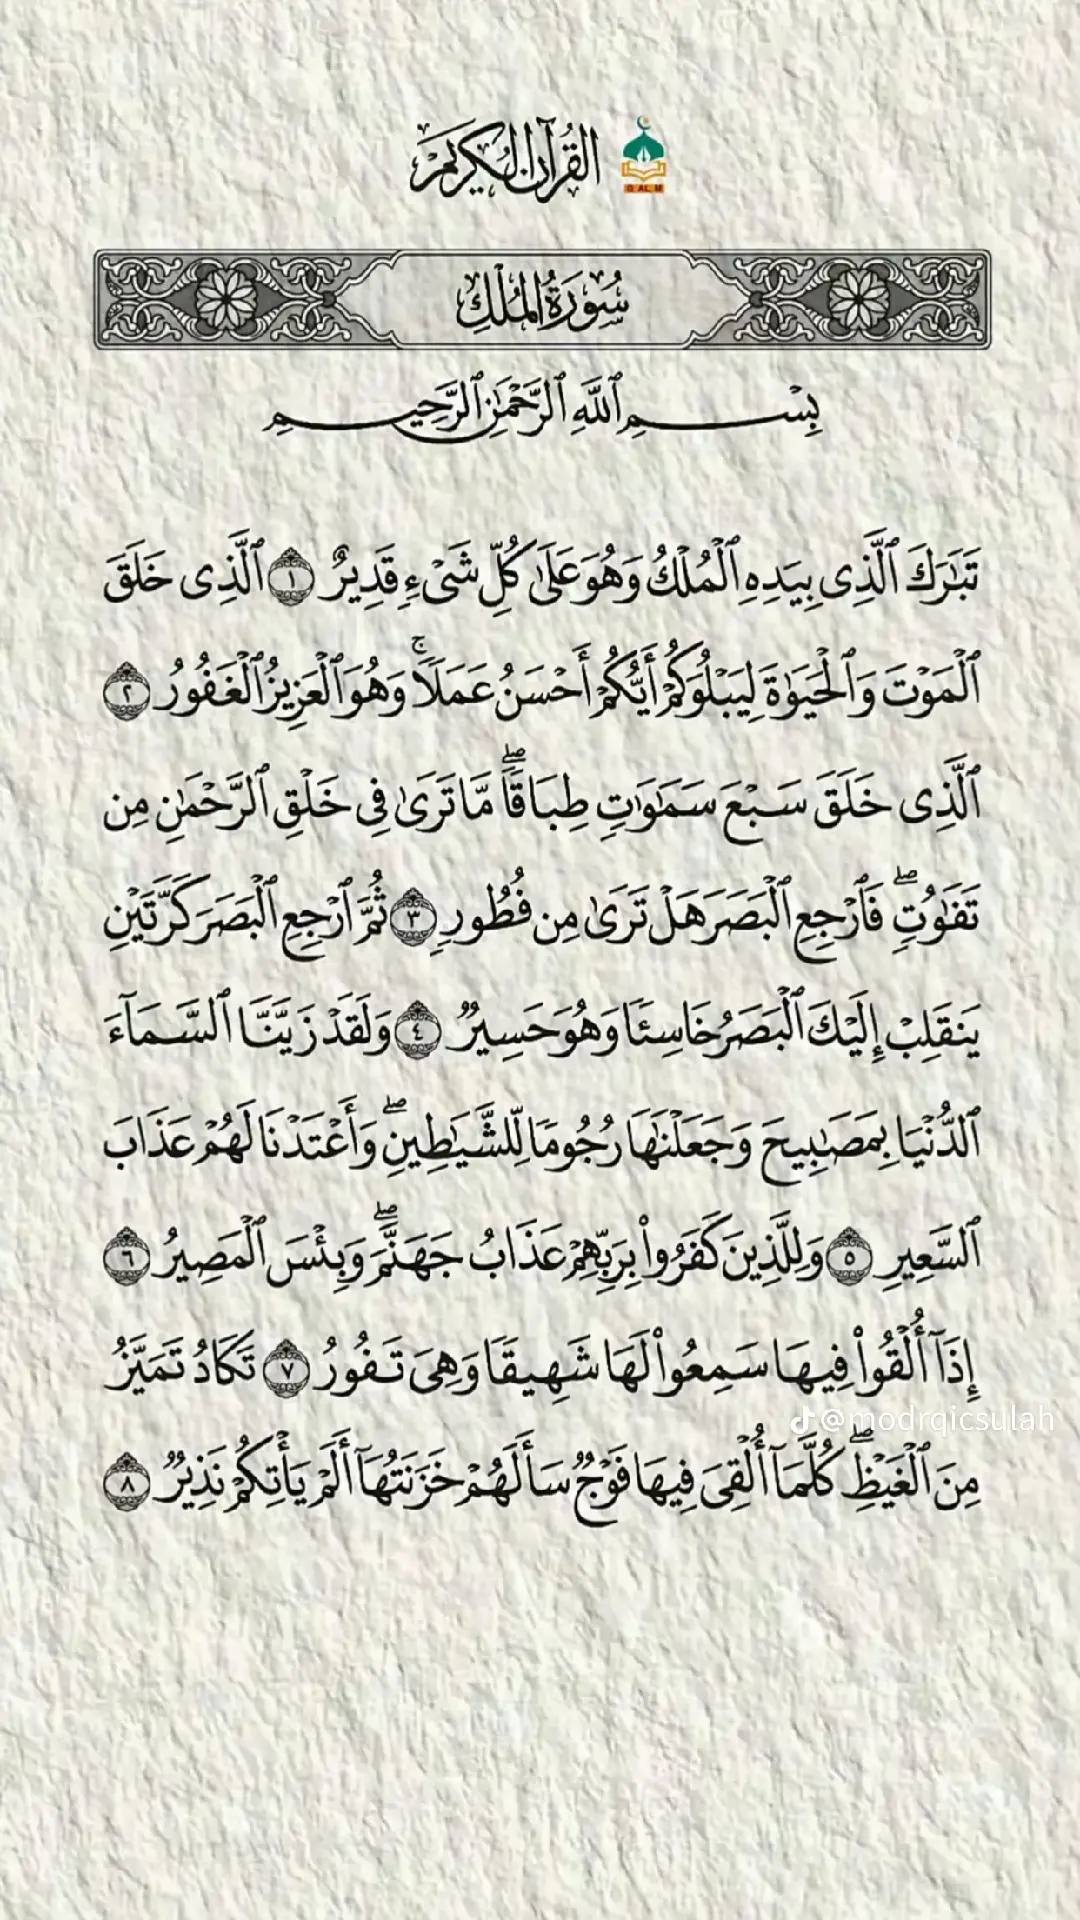 القرآن الكريم
Q AL M
سُورَةُ المُلْكِ
بِسْمِ ٱللَّهِ ٱلرَّحْمَٰنِ ٱلرَّحِيمِ
تَبَٰرَكَ ٱلَّذِى بِيَدِهِ ٱلْمُلْكُ وَهُوَ عَلَىٰ كُلِّ شَىْءٍ قَدِيرٌ ١ ٱلَّذِى خَلَقَ
ٱلْمَوْتَ وَٱلْحَيَوٰةَ لِيَبْلُوَكُمْ أَيُّكُمْ أَحْسَنُ عَمَلًا ۚ وَهُوَ ٱلْعَزِيزُ ٱلْغَفُورُ ٢
ٱلَّذِى خَلَقَ سَبْعَ سَمَٰوَٰتٍ طِبَاقًا ۖ مَّا تَرَىٰ فِى خَلْقِ ٱلرَّحْمَٰنِ مِن
تَفَٰوُتٍ ۖ فَٱرْجِعِ ٱلْبَصَرَ هَلْ تَرَىٰ مِن فُطُورٍ ٣ ثُمَّ ٱرْجِعِ ٱلْبَصَرَ كَرَّتَيْنِ
يَنقَلِبْ إِلَيْكَ ٱلْبَصَرُ خَاسِئًا وَهُوَ حَسِيرٌ ٤ وَلَقَدْ زَيَّنَّا ٱلسَّمَآءَ
ٱلدُّنْيَا بِمَصَٰبِيحَ وَجَعَلْنَٰهَا رُجُومًا لِّلشَّيَٰطِينِ ۖ وَأَعْتَدْنَا لَهُمْ عَذَابَ
ٱلسَّعِيرِ ٥ وَلِلَّذِينَ كَفَرُوا۟ بِرَبِّهِمْ عَذَابُ جَهَنَّمَ ۖ وَبِئْسَ ٱلْمَصِيرُ ٦
إِذَآ أُلْقُوا۟ فِيهَا سَمِعُوا۟ لَهَا شَهِيقًا وَهِىَ تَفُورُ ٧ تَكَادُ تَمَيَّزُ
@modrqicsulah
مِنَ ٱلْغَيْظِ ۖ كُلَّمَآ أُلْقِىَ فِيهَا فَوْجٌ سَأَلَهُمْ خَزَنَتُهَآ أَلَمْ يَأْتِكُمْ نَذِيرٌ ٨